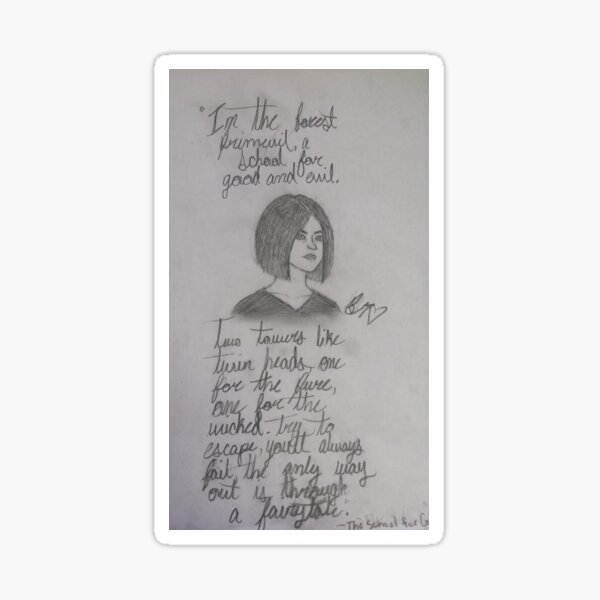 "In the forest
primeval, a
school for
good and evil.
two towers like
twin heads, one
for the pure,
one for the
wicked. try to
escape, you'll always
fail, the only way
out is through
a fairytale."
-The School for G